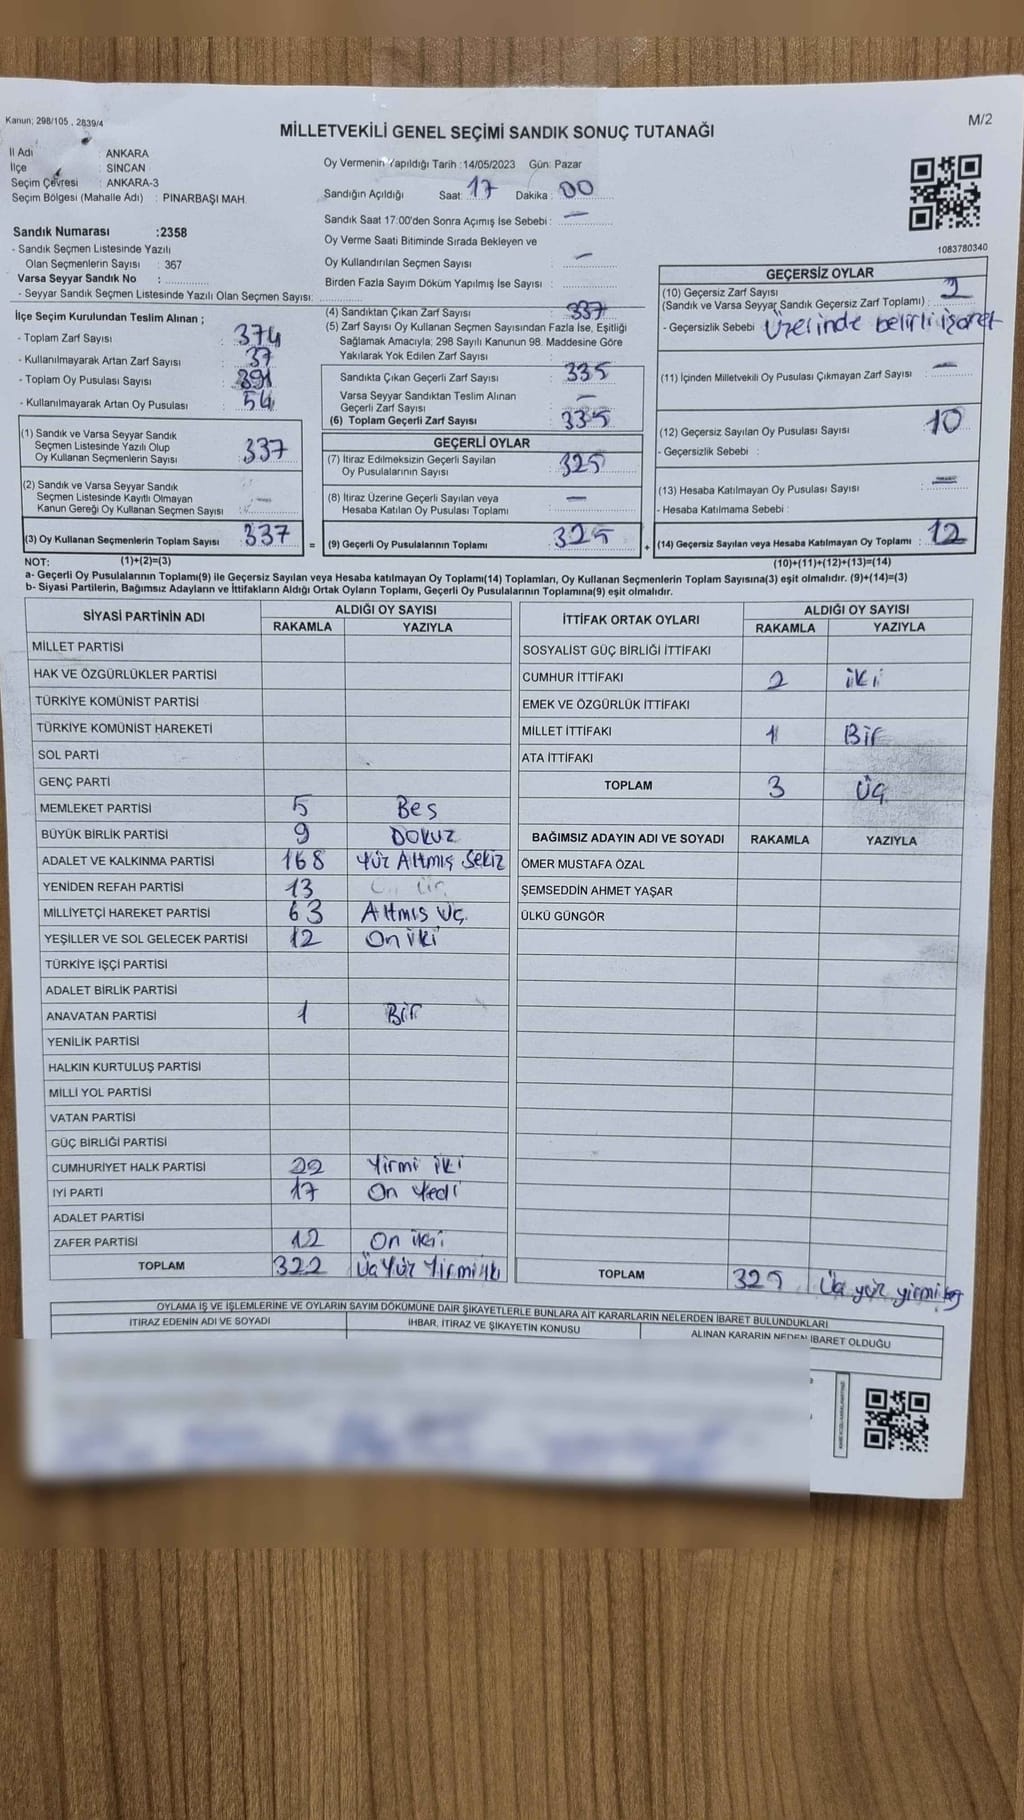 Kanun; 298/105 , 2839/4
M/2
MİLLETVEKİLİ GENEL SEÇİMİ SANDIK SONUÇ TUTANAĞI
İl Adı : ANKARA
İlçe : SİNCAN
Seçim Çevresi : ANKARA-3
Seçim Bölgesi (Mahalle Adı) : PINARBAŞI MAH.
Oy Vermenin Yapıldığı Tarih :14/05/2023 Gün: Pazar
Sandığın Açıldığı Saat: 17 Dakika : 00
Sandık Saat 17:00'den Sonra Açımış İse Sebebi : —
Oy Verme Saati Bitiminde Sırada Bekleyen ve
Oy Kullandırılan Seçmen Sayısı : —
Birden Fazla Sayım Döküm Yapılmış İse Sayısı :
Sandık Numarası :2358
- Sandık Seçmen Listesinde Yazılı
Olan Seçmenlerin Sayısı : 367
Varsa Seyyar Sandık No :
- Seyyar Sandık Seçmen Listesinde Yazılı Olan Seçmen Sayısı:
1083780340
İlçe Seçim Kurulundan Teslim Alınan ;
- Toplam Zarf Sayısı : 374
- Kullanılmayarak Artan Zarf Sayısı : 37
- Toplam Oy Pusulası Sayısı : 391
- Kullanılmayarak Artan Oy Pusulası : 54
(1) Sandık ve Varsa Seyyar Sandık
Seçmen Listesinde Yazılı Olup
Oy Kullanan Seçmenlerin Sayısı : 337
(2) Sandık ve Varsa Seyyar Sandık
Seçmen Listesinde Kayıtlı Olmayan
Kanun Gereği Oy Kullanan Seçmen Sayısı : —
(3) Oy Kullanan Seçmenlerin Toplam Sayısı : 337
(4) Sandıktan Çıkan Zarf Sayısı : 337
(5) Zarf Sayısı Oy Kullanan Seçmen Sayısından Fazla İse, Eşitliği
Sağlamak Amacıyla; 298 Sayılı Kanunun 98. Maddesine Göre
Yakılarak Yok Edilen Zarf Sayısı :
Sandıkta Çıkan Geçerli Zarf Sayısı : 335
Varsa Seyyar Sandıktan Teslim Alınan
Geçerli Zarf Sayısı : —
(6) Toplam Geçerli Zarf Sayısı : 335
GEÇERLİ OYLAR
(7) İtiraz Edilmeksizin Geçerli Sayılan
Oy Pusulalarının Sayısı : 325
(8) İtiraz Üzerine Geçerli Sayılan veya
Hesaba Katılan Oy Pusulası Toplamı : —
= (9) Geçerli Oy Pusulalarının Toplamı : 325
GEÇERSİZ OYLAR
(10) Geçersiz Zarf Sayısı
(Sandık ve Varsa Seyyar Sandık Geçersiz Zarf Toplamı) : 2
- Geçersizlik Sebebi : Üzerinde belirli işaret
(11) İçinden Milletvekili Oy Pusulası Çıkmayan Zarf Sayısı : —
(12) Geçersiz Sayılan Oy Pusulası Sayısı : 10
- Geçersizlik Sebebi :
(13) Hesaba Katılmayan Oy Pusulası Sayısı : —
- Hesaba Katılmama Sebebi :
+ (14) Geçersiz Sayılan veya Hesaba Katılmayan Oy Toplamı : 12
NOT: (1)+(2)=(3) (10)+(11)+(12)+(13)=(14)
a- Geçerli Oy Pusulalarının Toplamı(9) ile Geçersiz Sayılan veya Hesaba katılmayan Oy Toplamı(14) Toplamları, Oy Kullanan Seçmenlerin Toplam Sayısına(3) eşit olmalıdır. (9)+(14)=(3)
b- Siyasi Partilerin, Bağımsız Adayların ve İttifakların Aldığı Ortak Oyların Toplamı, Geçerli Oy Pusulalarının Toplamına(9) eşit olmalıdır.
SİYASİ PARTİNİN ADI ALDIĞI OY SAYISI
RAKAMLA YAZIYLA
MİLLET PARTİSİ
HAK VE ÖZGÜRLÜKLER PARTİSİ
TÜRKİYE KOMÜNİST PARTİSİ
TÜRKİYE KOMÜNİST HAREKETİ
SOL PARTİ
GENÇ PARTİ
MEMLEKET PARTİSİ 5 Bes
BÜYÜK BİRLİK PARTİSİ 9 Dokuz
ADALET VE KALKINMA PARTİSİ 168 Yüz Altmış Sekiz
YENİDEN REFAH PARTİSİ 13
MİLLİYETÇİ HAREKET PARTİSİ 63 Altmıs Üç
YEŞİLLER VE SOL GELECEK PARTİSİ 12 On iki
TÜRKİYE İŞÇİ PARTİSİ
ADALET BİRLİK PARTİSİ
ANAVATAN PARTİSİ 1 Bir
YENİLİK PARTİSİ
HALKIN KURTULUŞ PARTİSİ
MİLLİ YOL PARTİSİ
VATAN PARTİSİ
GÜÇ BİRLİĞİ PARTİSİ
CUMHURİYET HALK PARTİSİ 22 Yirmi iki
İYİ PARTİ 17 On Yedi
ADALET PARTİSİ
ZAFER PARTİSİ 12 On iki
TOPLAM 322 Üç Yüz Yirmi iki
İTTİFAK ORTAK OYLARI ALDIĞI OY SAYISI
RAKAMLA YAZIYLA
SOSYALİST GÜÇ BİRLİĞİ İTTİFAKI
CUMHUR İTTİFAKI 2 iki
EMEK VE ÖZGÜRLÜK İTTİFAKI
MİLLET İTTİFAKI 1 Bir
ATA İTTİFAKI
TOPLAM 3 Üç
BAĞIMSIZ ADAYIN ADI VE SOYADI RAKAMLA YAZIYLA
ÖMER MUSTAFA ÖZAL
ŞEMSEDDİN AHMET YAŞAR
ÜLKÜ GÜNGÖR
TOPLAM 325 Üç yüz yirmi beş
OYLAMA İŞ VE İŞLEMLERİNE VE OYLARIN SAYIM DÖKÜMÜNE DAİR ŞİKAYETLERLE BUNLARA AİT KARARLARIN NELERDEN İBARET BULUNDUKLARI
İTİRAZ EDENİN ADI VE SOYADI İHBAR, İTİRAZ VE ŞİKAYETİN KONUSU ALINAN KARARIN NEDEN İBARET OLDUĞU